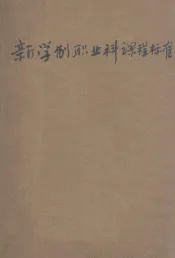 新学制职业科课程标准